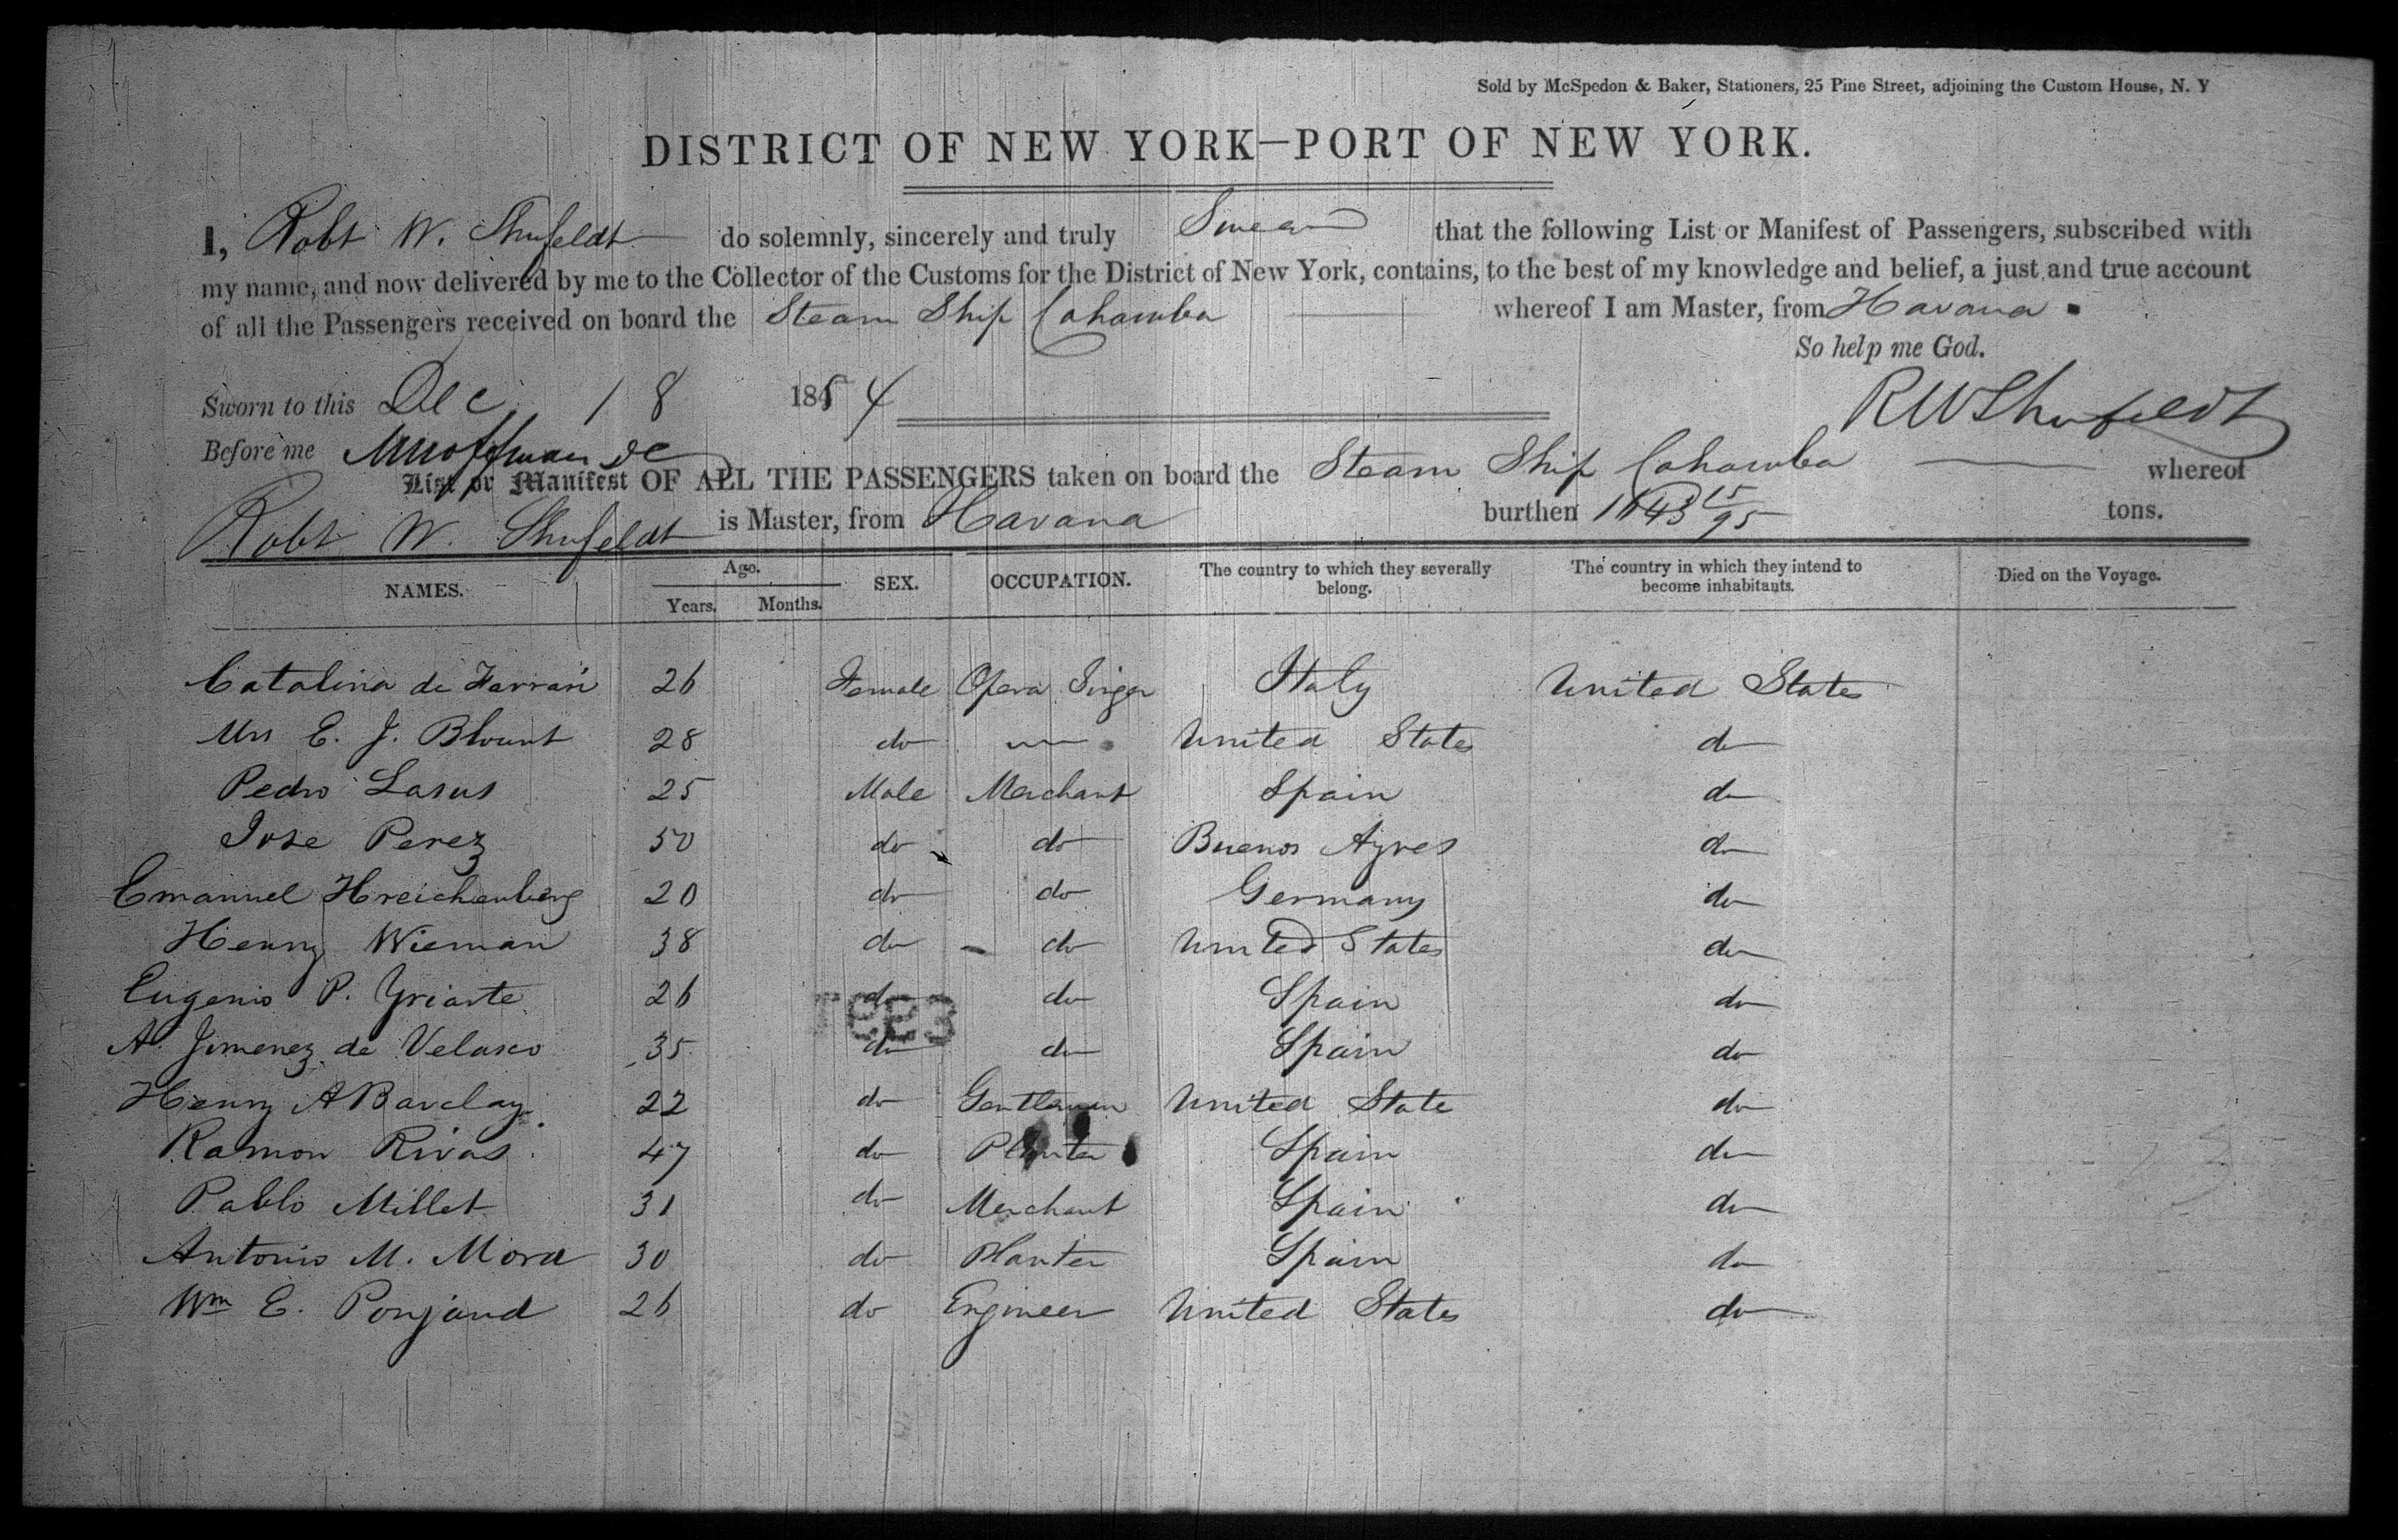 Sold by McSpedon & Baker, Stationers, 25 Pine Street, adjoining the Custom House, N. Y
DISTRICT OF NEW YORK—PORT OF NEW YORK.
I, Robt W. Shufeldt do solemnly, sincerely and truly Swear that the following List or Manifest of Passengers, subscribed with
my name, and now delivered by me to the Collector of the Customs for the District of New York, contains, to the best of my knowledge and belief, a just and true account
of all the Passengers received on board the Steam Ship Cahawba whereof I am Master, from Havana
So help me God.
Sworn to this Dec 18 1854
RWShufeldt
Before me
List or Manifest OF ALL THE PASSENGERS taken on board the Steam Ship Cahawba whereof
Robt W. Shufeldt is Master, from Havana burthen 1643 15/95 tons.
NAMES. Age. Years. Months. SEX. OCCUPATION. The country to which they severally belong. The country in which they intend to become inhabitants. Died on the Voyage.
Catalina de Ferrari 26 Female Opera Singer Italy United States
Mrs E. J. Blount 28 do United States do
Pedro Lasus 25 Male Merchant Spain do
Jose Perez 50 do do Buenos Ayres do
Emanuel Hreichenberg 20 do do Germany do
Henry Wieman 38 do do United States do
Eugenio P. Yriarte 26 do do Spain do
A. Jimenez de Velasco 35 do do Spain do
Henry A Barclay 22 do Gentleman United State do
Ramon Rivas 47 do Planter Spain do
Pablo Millet 31 do Merchant Spain do
Antonio M. Mora 30 do Planter Spain do
Wm E. Ponjaud 26 do Engineer United States do